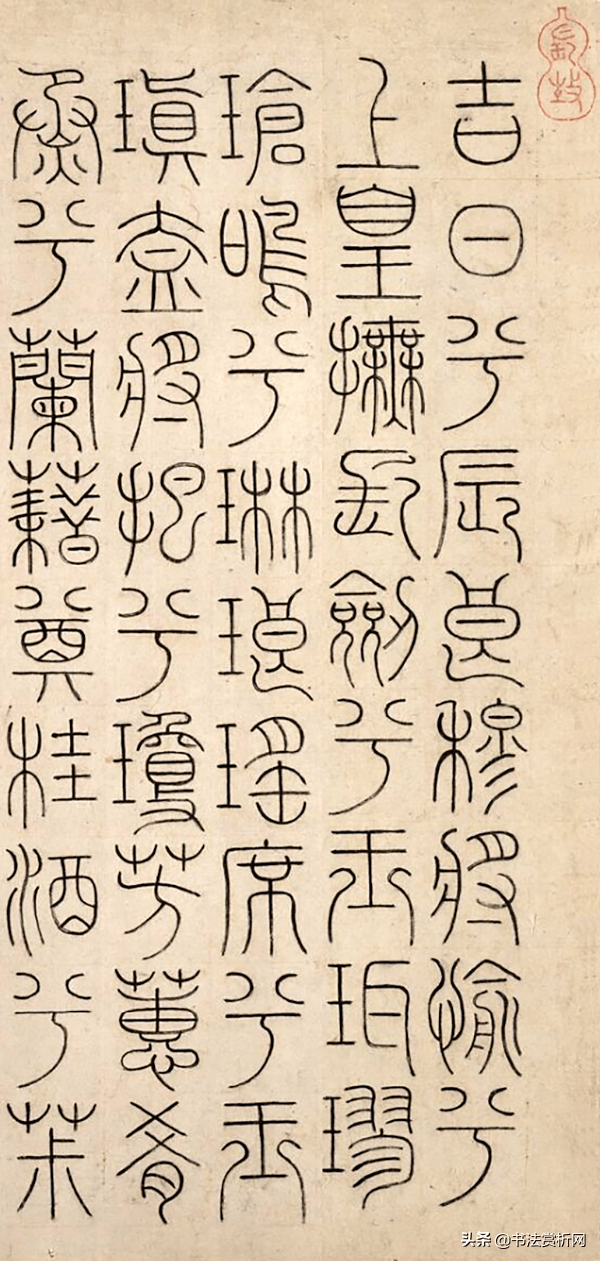 吉日兮辰良穆將愉兮
上皇撫長劍兮玉珥璆
瑲鳴兮琳琅瑤席兮玉
瑱盍將把兮瓊芳蕙肴
烝兮蘭藉奠桂酒兮茮
头条 @书法赏析网